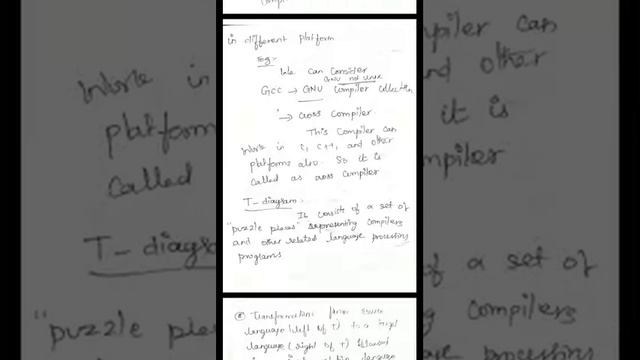 in different platform
Eg:-
We can consider
GNU not unix
GCC → GNU compiler collection
→ cross compiler
This compiler can
work in c, c++, and other
platforms also. So it is
called as cross compiler
T-diagram
It consist of a set of
"puzzle pieces" representing compilers
and other related language processing
programs
language (left of T) to a
language (right of T)